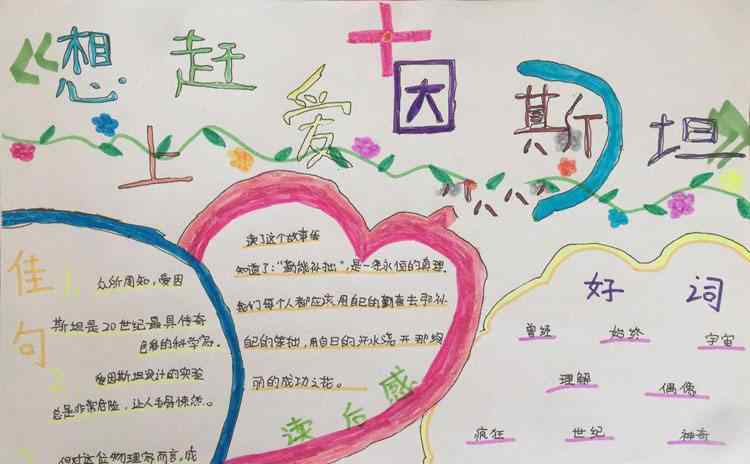 《想赶上爱因斯坦》
佳句
1. 众所周知，爱因
斯坦是20世纪最具传奇
色彩的科学家。
2 爱因斯坦设计的实验
总是非常危险，让人毛骨悚然。
但对这位物理家而言，成
读了这个故事后
知道了："勤能补拙"，是一条永恒的真理。
我们每个人都应该用自己的勤奋去弥补
自己的笨拙，用自日的开水浇开那绚
丽的成功之花。
读后感
好词
曾经 始终 宇宙
理解 偶像
疯狂 世纪 神奇